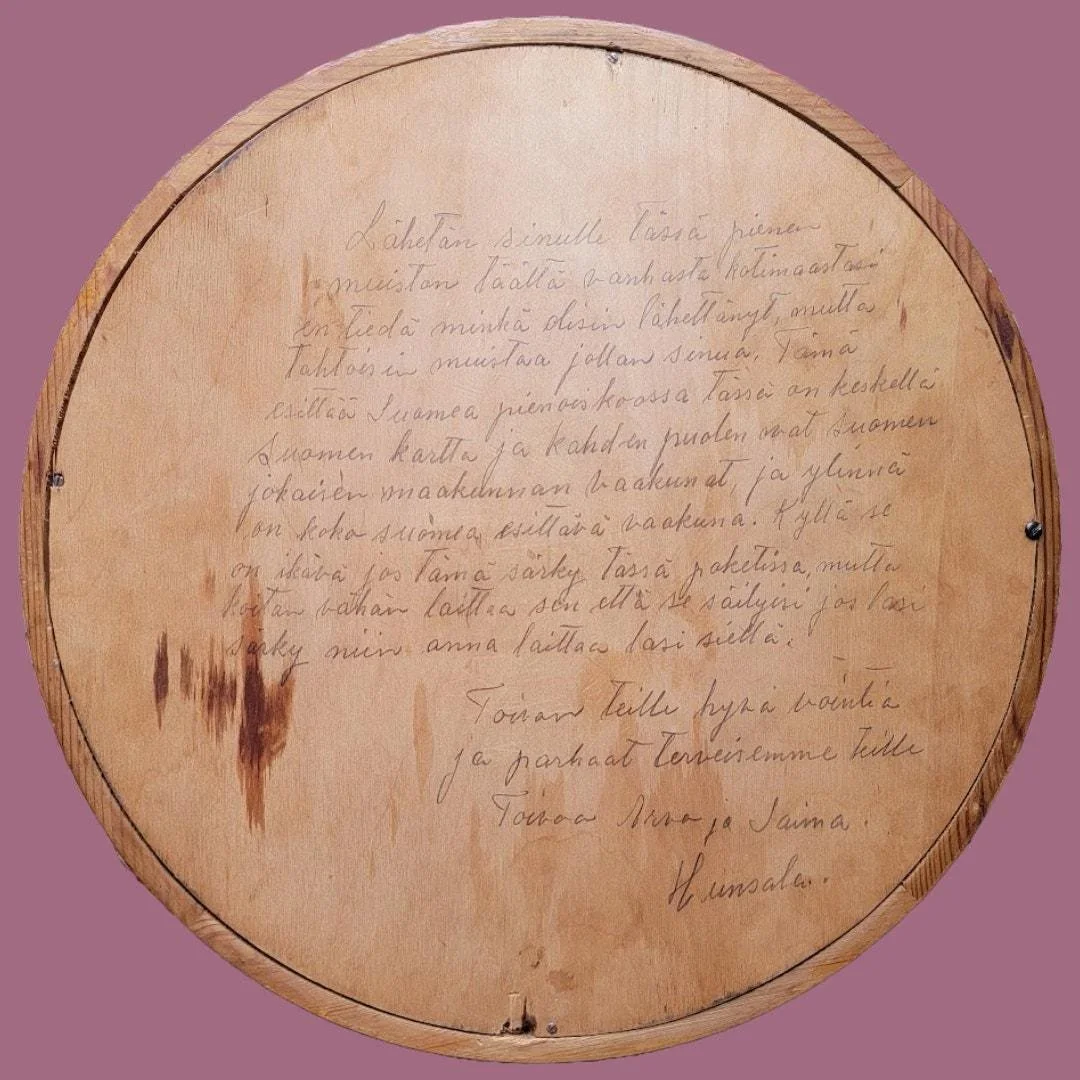 Lähetän sinulle tässä pienen
muiston täältä vanhasta kotimaastasi
en tiedä minkä olisin lähettänyt, mutta
tahtoisin muistaa jollan sinua. Tämä
esittää Suomea pienoiskoossa tässä on keskellä
Suomen kartta ja kahden puolen ovat suomen
jokaisen maakunnan vaakunat, ja ylinnä
on koko suomea esittävä vaakuna. Kyllä se
on ikävä jos tämä särky tässä paketissa, mutta
koitan vähän laittaa sen että se säilyisi jos lasi
särky niin anna laittaa lasi siellä.
Toivon teille hyvä vointia
ja parhaat terveisemme teille
Toivoo Arvo ja Saima.